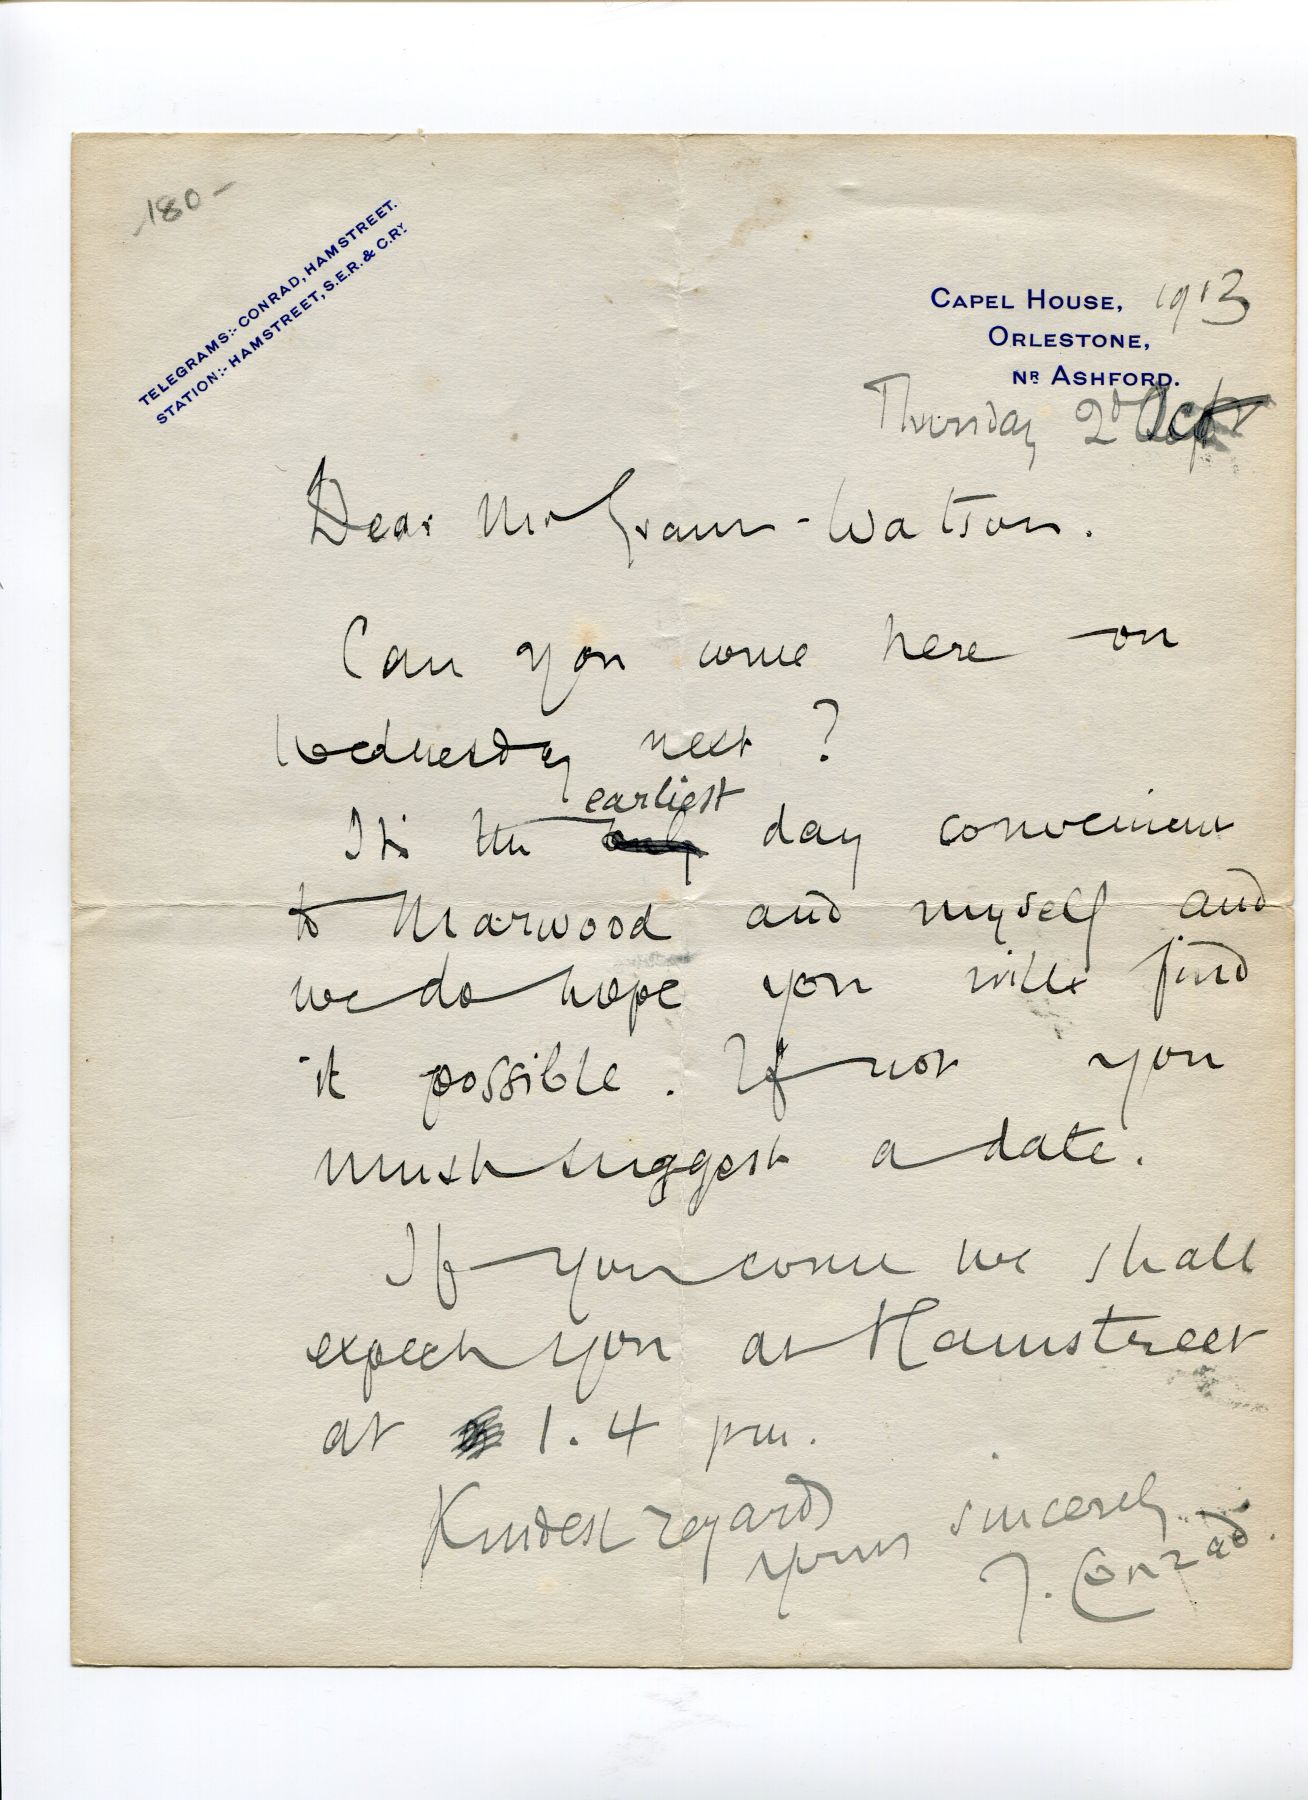 180-
TELEGRAMS:- CONRAD, HAMSTREET.
STATION:- HAMSTREET, S.E.R. & C.RY.
CAPEL HOUSE, 1913
ORLESTONE,
NR ASHFORD.
Thursday 2d Oct
Dear Mr Grant-Watson.
Can you come here on
Wednesday next?
earliest
It's the only day convenient
to Marwood and myself and
we do hope you will find
it possible. If not you
must suggest a date.
If you come we shall
expect you at Hamstreet
at 1.4 pm.
Kindest regards
yours sincerely
J. Conrad.